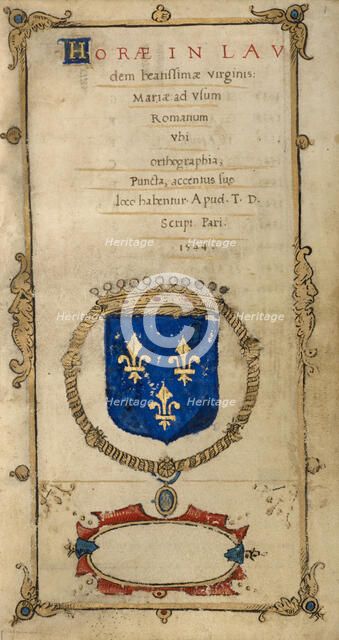 HORÆ IN LAV
dem beatissimæ virginis:
Mariæ ad vsum
Romanum
vbi
orthographia,
Puncta, accentus suo
loco habentur. Apud. T. D.
Script. Pari.
1544.
Heritage Heritage
Heritage Heritage
Heritage Heritage